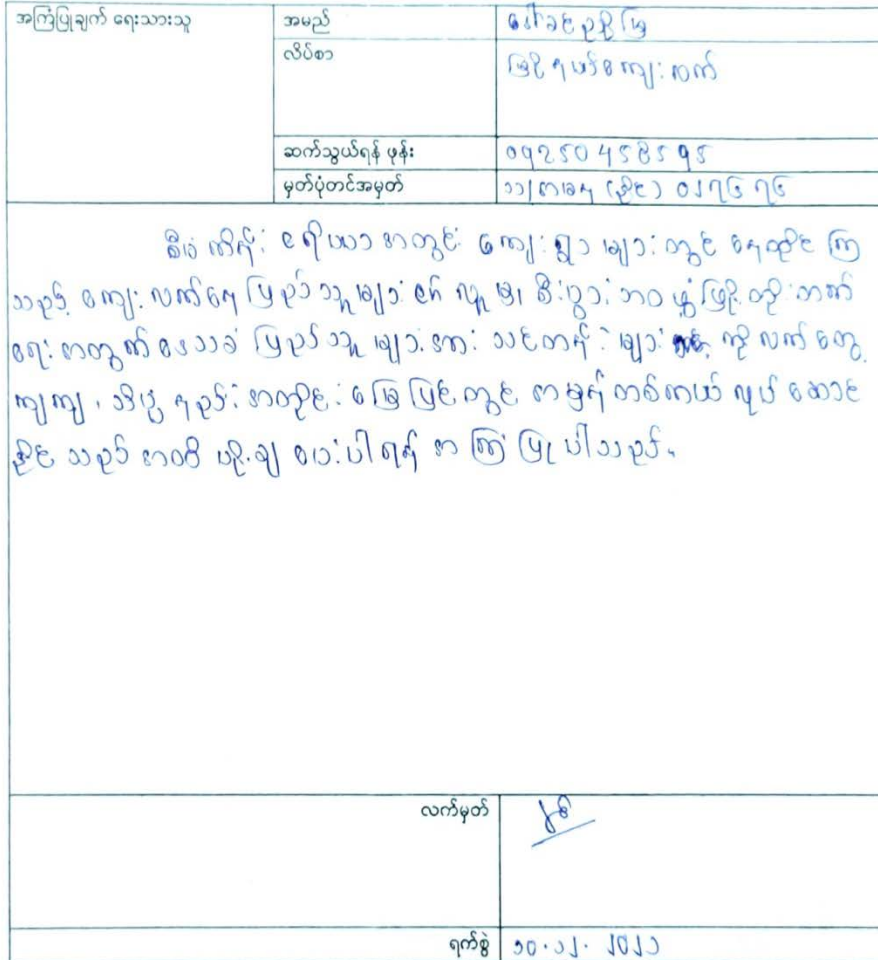 အကြံပြုချက် ရေးသားသူ
အမည်
ဒေါ်ခင်ညိုမြ
လိပ်စာ
မြို့နယ်ကျေးလက်
ဆက်သွယ်ရန် ဖုန်း
09250458595
မှတ်ပုံတင်အမှတ်
၁၁/တခန (နိုင်) ၀၂၇၆၇၆
စီမံကိန်း ဧရိယာအတွင်း ကျေးရွာများတွင် နေထိုင်ကြ
သည့် ကျေးလက်နေ ပြည်သူများ၏ လူမှုစီးပွားဘဝ ဖွံ့ဖြိုးတိုးတက်
ရေးအတွက် ဒေသခံ ပြည်သူများအား သင်တန်းများ ကို လက်တွေ့
ကျကျ၊ သိပ္ပံနည်းအတိုင်း မြေပြင်တွင် အမှန်တစ်ကယ် လုပ်ဆောင်
နိုင်သည်အထိ ပို့ချပေးပါရန် အကြံပြုပါသည်။
လက်မှတ်
ရက်စွဲ
၁၀.၁၂.၂၀၂၁